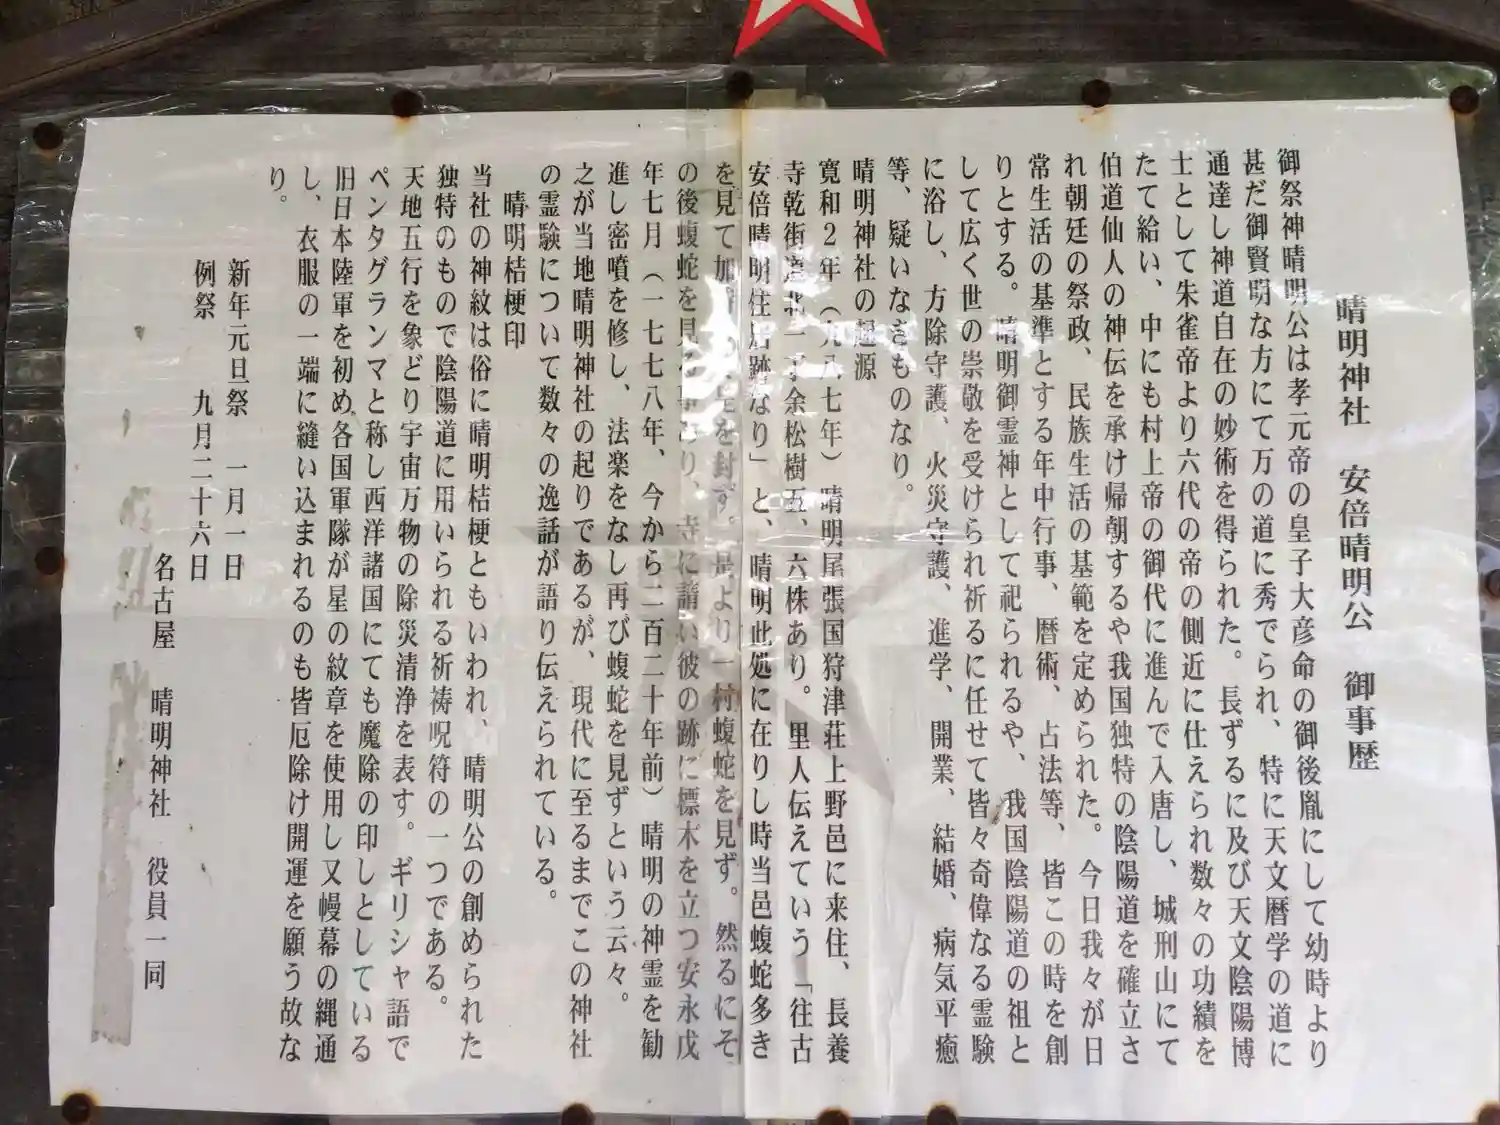 晴明神社　安倍晴明公　御事歴
御祭神晴明公は孝元帝の皇子大彦命の御後胤にして幼時より
甚だ御賢明な方にて万の道に秀でられ、特に天文暦学の道に
通達し神道自在の妙術を得られた。長ずるに及び天文陰陽博
士として朱雀帝より六代の帝の側近に仕えられ数々の功績を
たて給い、中にも村上帝の御代に進んで入唐し、城刑山にて
伯道仙人の神伝を承け帰朝するや我国独特の陰陽道を確立さ
れ朝廷の祭政、民族生活の基範を定められた。今日我々が日
常生活の基準とする年中行事、暦術、占法等、皆この時を創
りとする。晴明御霊神として祀られるや、我国陰陽道の祖と
して広く世の崇敬を受けられ祈るに任せて皆々奇偉なる霊験
に浴し、方除守護、火災守護、進学、開業、結婚、病気平癒
等、疑いなきものなり。
晴明神社の起源
寛和２年（九八七年）晴明尾張国狩津荘上野邑に来住、長養
寺乾街道北一丁余松樹五、六株あり。里人伝えていう「往古
安倍晴明住居跡なり」と、晴明此処に在りし時当邑蝮蛇多き
を見て加 を封ず。是より一村蝮蛇を見ず。然るにそ
の後蝮蛇を見る事あり、寺に請い彼の跡に標木を立つ安永戊
年七月（一七七八年、今から二百二十年前）晴明の神霊を勧
進し密噴を修し、法楽をなし再び蝮蛇を見ずという云々。
之が当地晴明神社の起りであるが、現代に至るまでこの神社
の霊験について数々の逸話が語り伝えられている。
晴明桔梗印
当社の神紋は俗に晴明桔梗ともいわれ、晴明公の創められた
独特のもので陰陽道に用いられる祈祷呪符の一つである。
天地五行を象どり宇宙万物の除災清浄を表す。ギリシャ語で
ペンタグランマと称し西洋諸国にても魔除の印しとしている
旧日本陸軍を初め各国軍隊が星の紋章を使用し又幔幕の縄通
し、衣服の一端に縫い込まれるのも皆厄除け開運を願う故な
り。
新年元旦祭　一月一日
例祭　九月二十六日
名古屋　晴明神社　役員一同